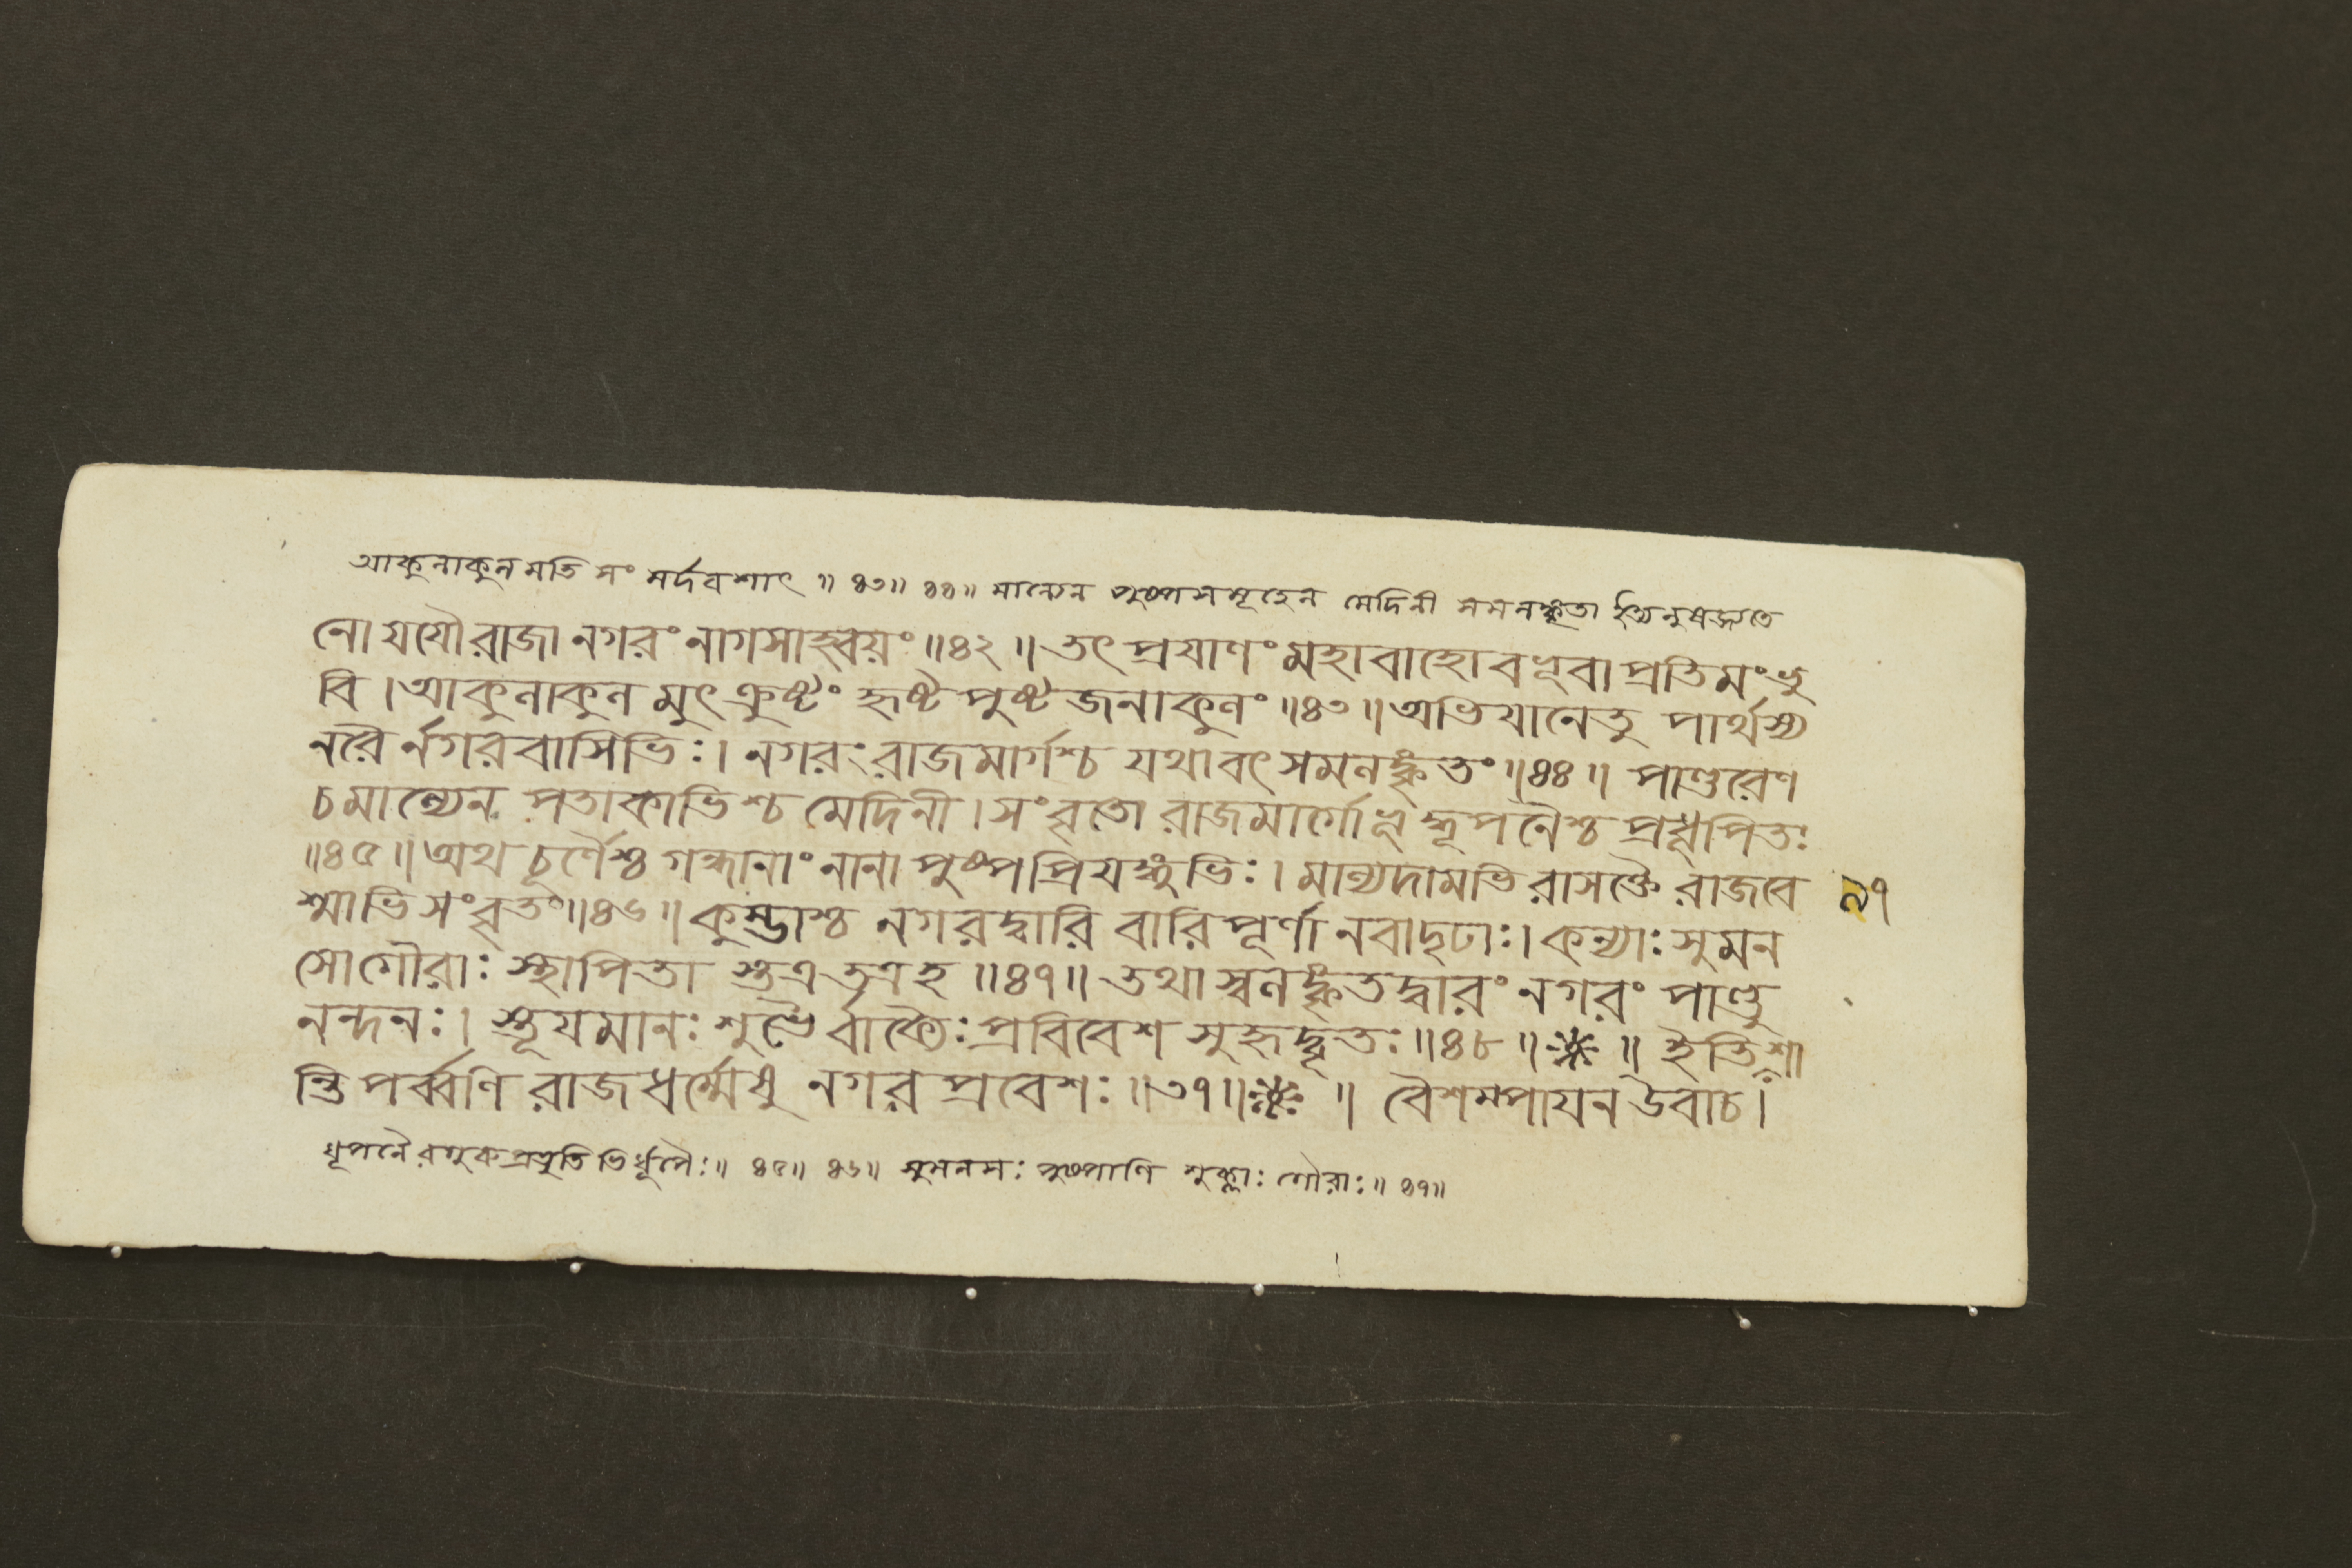 আকুলাকুলমতি সংমর্দবশাৎ ॥ ৪৩॥ ৪৪॥ মাল্যেন পুষ্পসমূহেন মেদিনী সমলঙ্কৃতা ইত্যনুষজ্জ্যতে
নো যযৌ রাজা নগরং নাগসাহ্বয়ং ॥৪২॥ তৎ প্রযাণং মহাবাহো বভূবা প্রতিমং ভু
বি । আকুলাকুল মুৎক্রুষ্টং হৃষ্ট পুষ্ট জনাকুলং ॥৪৩॥ অভিযানে তু পার্থস্য
নরৈ র্নগরবাসিভিঃ । নগরং রাজমার্গশ্চ যথাবৎ সমলঙ্কৃতং ॥৪৪॥ পাণ্ডুরেণ
চ মাল্যেন পতাকাভিশ্চ মেদিনী । সংবৃতো রাজমার্গো ভূদ্ধূপনৈশ্চ প্রধূপিতঃ
॥৪৫॥ অথ চূর্ণৈশ্চ গন্ধানাং নানা পুষ্পপ্রিযঙ্গুভিঃ । মাল্যদামভি রাসক্তৈ রাজবে ৯৭
শ্মাভিসংবৃতং ॥৪৬॥ কুম্ভাশ্চ নগরদ্বারি বারিপূর্ণা নবা দৃঢাঃ । কন্যাঃ সুমন
সো গৌরাঃ স্থাপিতা স্তত্র তত্র হ ॥৪৭॥ তথা স্বলঙ্কৃতদ্বারং নগরং পাণ্ডু
নন্দনঃ । স্তূযমানঃ শুভৈ র্বাক্যৈঃ প্রবিবেশ সুহৃদ্বৃতঃ ॥৪৮॥ ※ ॥ ইতি শা
ন্তি পর্ব্বণি রাজধর্ম্মেষু নগর প্রবেশঃ ॥৩৭॥ ※ ॥ বৈশম্পাযন উবাচ ।
ধূপনৈ রগুরুপ্রভৃতিভির্ধূপৈঃ ॥ ৪৫॥ ৪৬॥ সুমনসঃ পুষ্পাণি শুক্লাঃ গৌরাঃ ॥ ৪৭॥